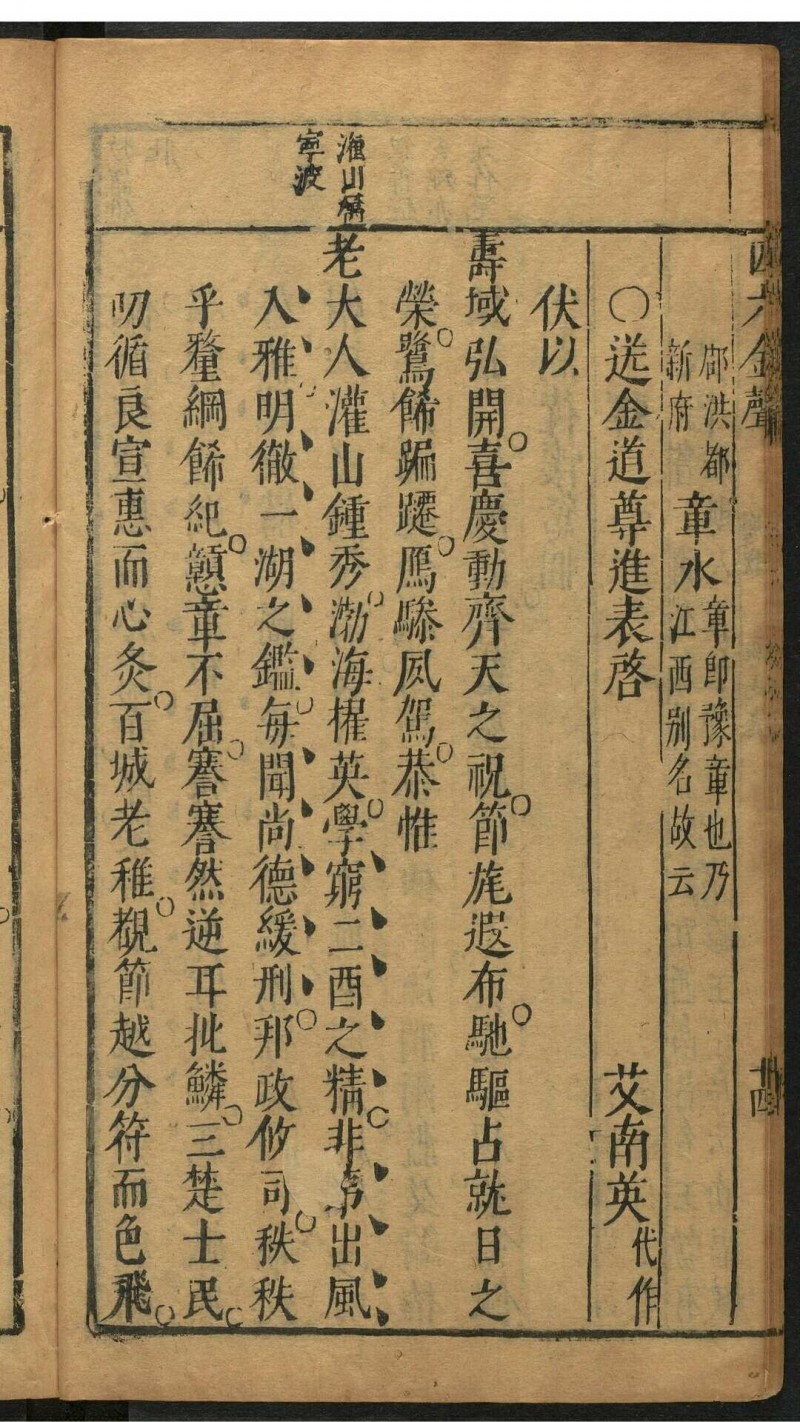 四六金聲
廿四
鄖洪都
新府
章水
章卽豫章也乃
江西别名故云
○送金道尊進表啓
艾南英
代作
伏以
壽域弘開喜慶動齊天之祝節旄遐布馳驅占就日之
榮鷺餙蹁躚鴈驂夙駕恭惟
老大人灌山鍾秀渤海擢英學窮二酉之精非易出風
入雅明徹一湖之鑑每聞尚德緩刑邦政攸司秩秩
乎釐綱餙紀戇章不屈謇謇然逆耳批鱗三楚士民
叨循良宣惠而心灸百城老稚覩節越分符而色飛
寧波